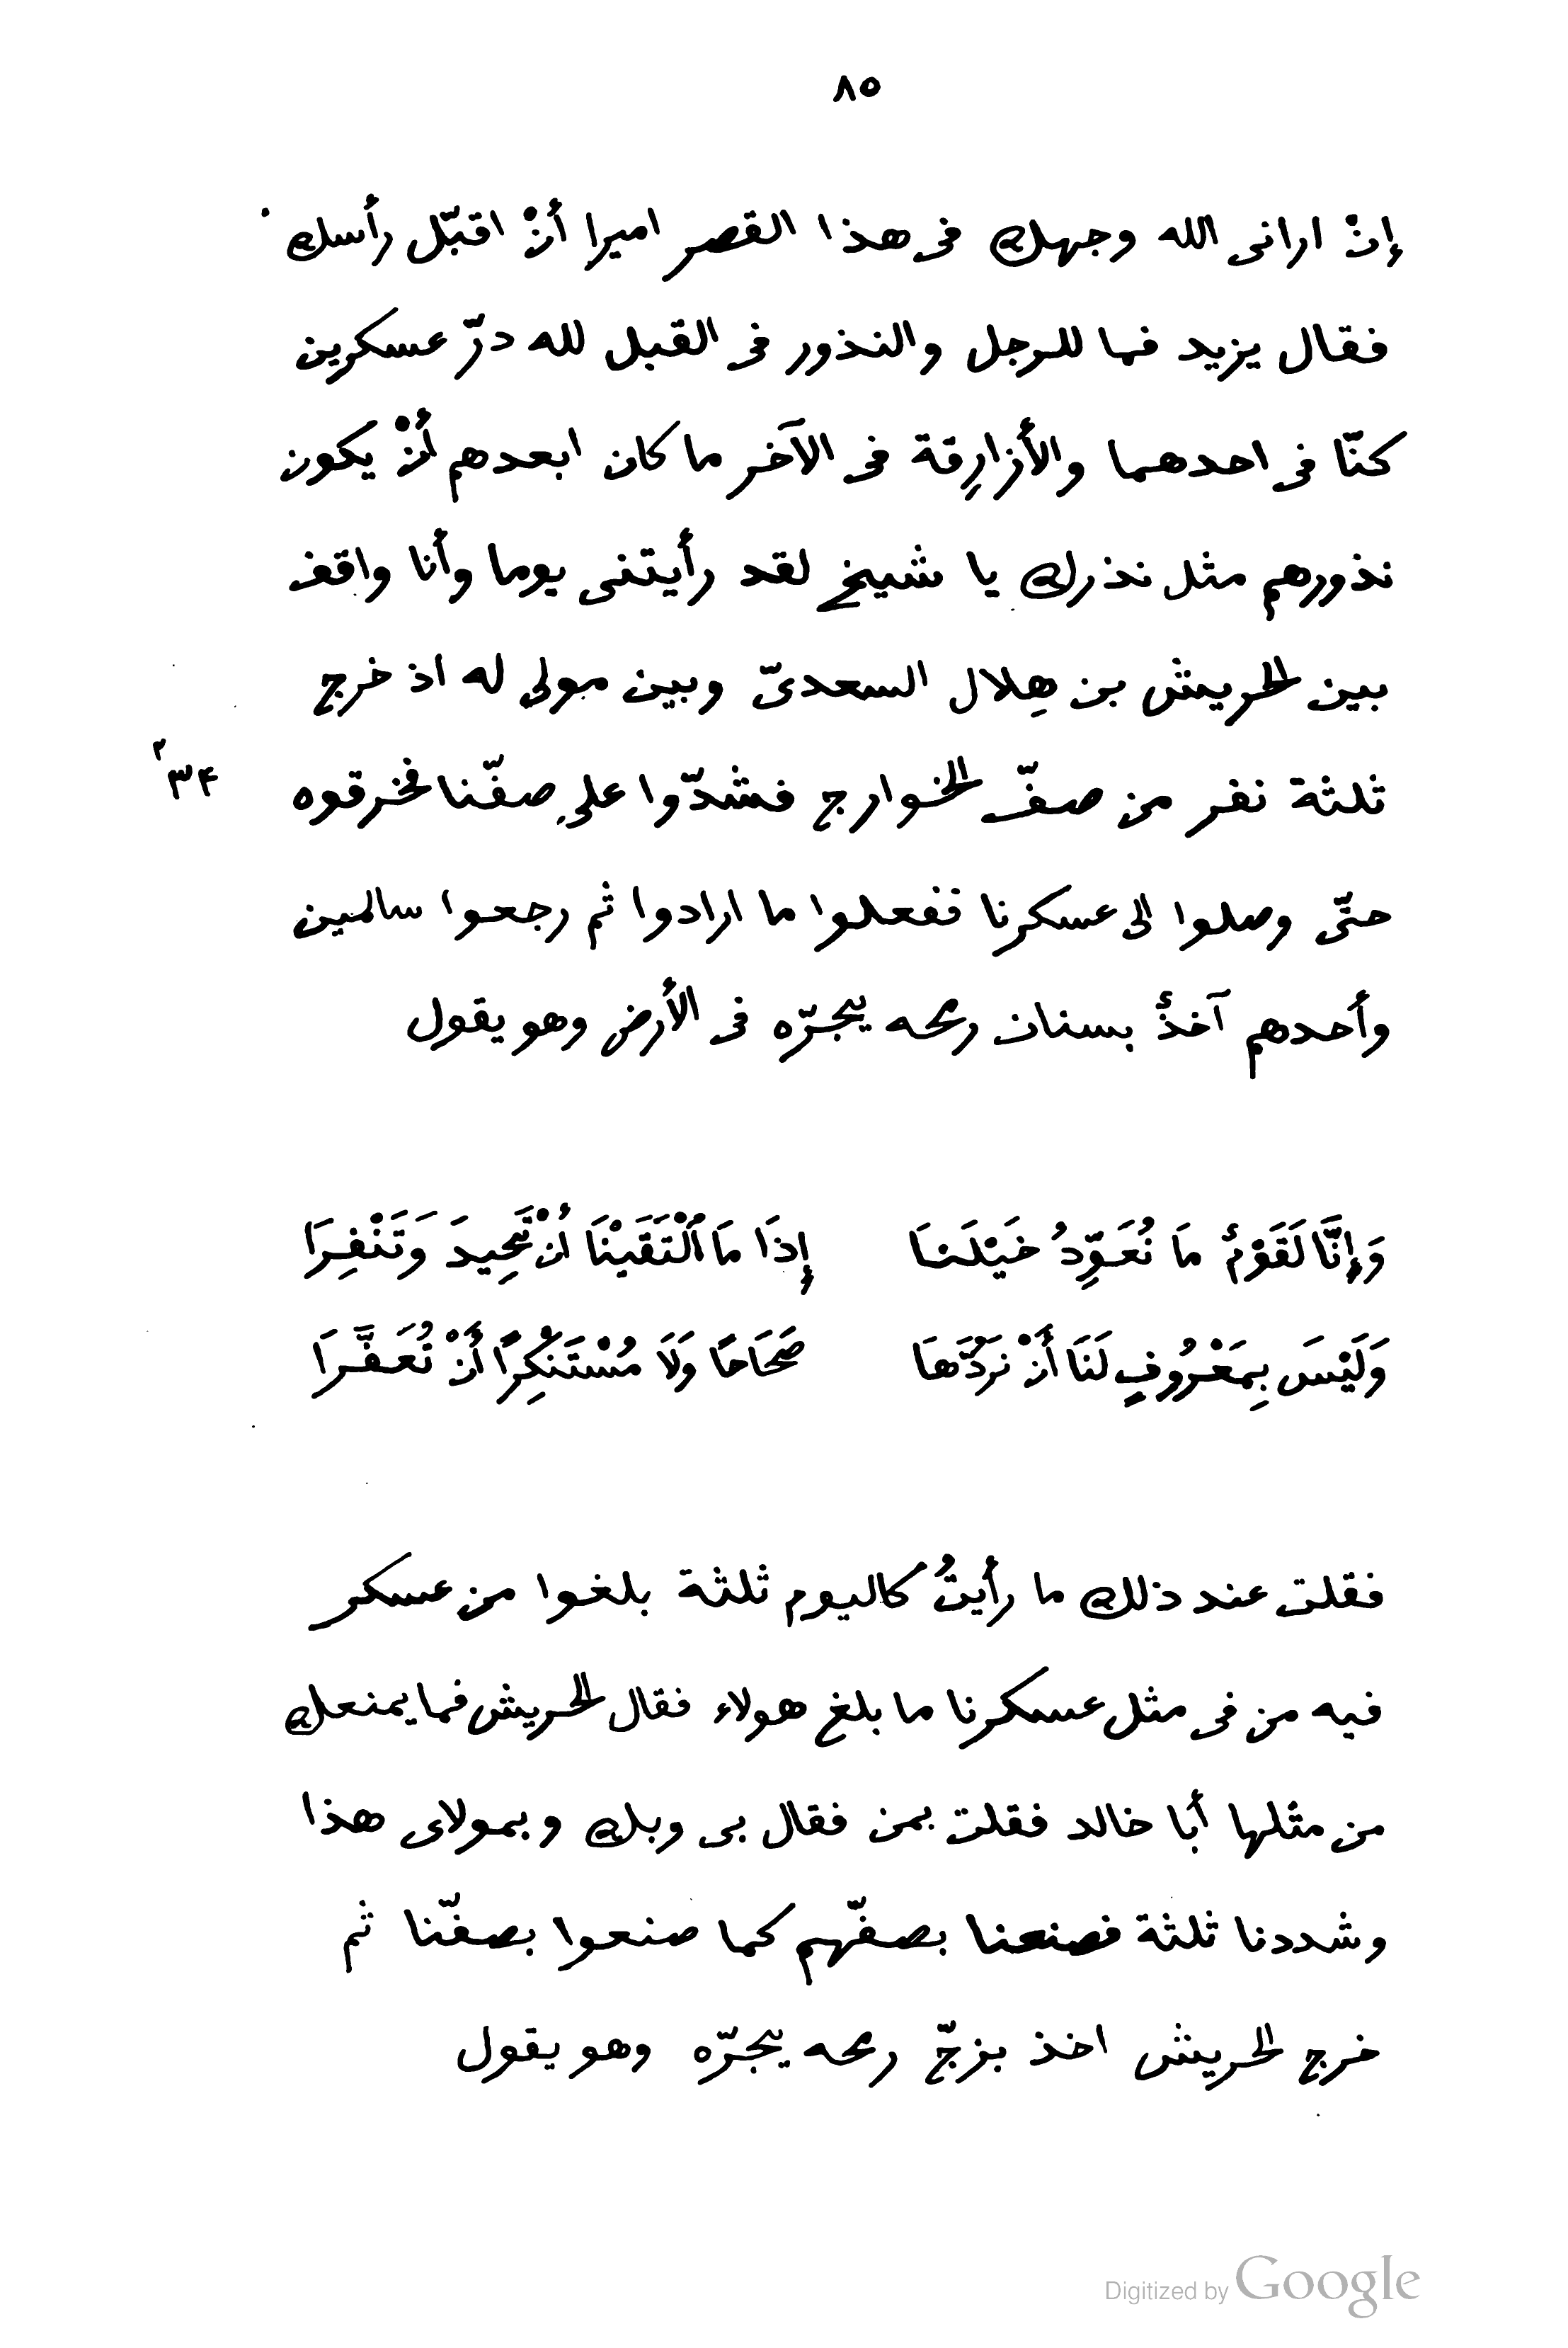 ٨٥
إنْ ارانى الله وجهك فى هذا القصر اميرا أنْ اقبّل رأسك
فقال يزيد فما للرجل والنذور فى القبل لله درّ عسكرين
كنّا فى احدهما والأزارِقة فى الآخر ما كان ابعدهم أنْ يكون
نذورهم مثل نذرك يا شيخ لقد رأيتنى يوما وأنا واقف
بين الحريش بن هِلال السعدىّ وبين مولى له اذ خرج
ثلثة نفر من صفّ الخوارج فشدّوا على صفّنا فخرقوه
حتّى وصلوا الى عسكرنا ففعلوا ما ارادوا ثم رجعوا سالمين
وأحدهم آخذٌ بسنان رمحه يجرّه فى الأرض وهو يقول
وَإِنَّا لَقَوْمٌ مَا نُعَوِّدُ خَيْلَنَا إِذَا مَا ٱلْتَقَيْنَا أَنْ تَحِيدَ وَتَنْفِرَا
وَلَيْسَ بِمَعْرُوفٍ لَنَا أَنْ نَرُدَّهَا صَحَاحًا وَلَا مُسْتَنْكِرًا أَنْ تُعَفَّرَا
فقلت عند ذلك ما رأيتُ كاليوم ثلثة بلغوا من عسكر
فيه من فى مثل عسكرنا ما بلغ هولاء فقال الحريش فما يمنعك
من مثلها أبا خالد فقلت بمن فقال بى وبك وبمولاى هذا
وشددنا ثلثة فصنعنا بصفّهم كما صنعوا بصفّنا ثم
خرج الحريش اخذ بزجّ رمحه يجرّه وهو يقول
Digitized by Google